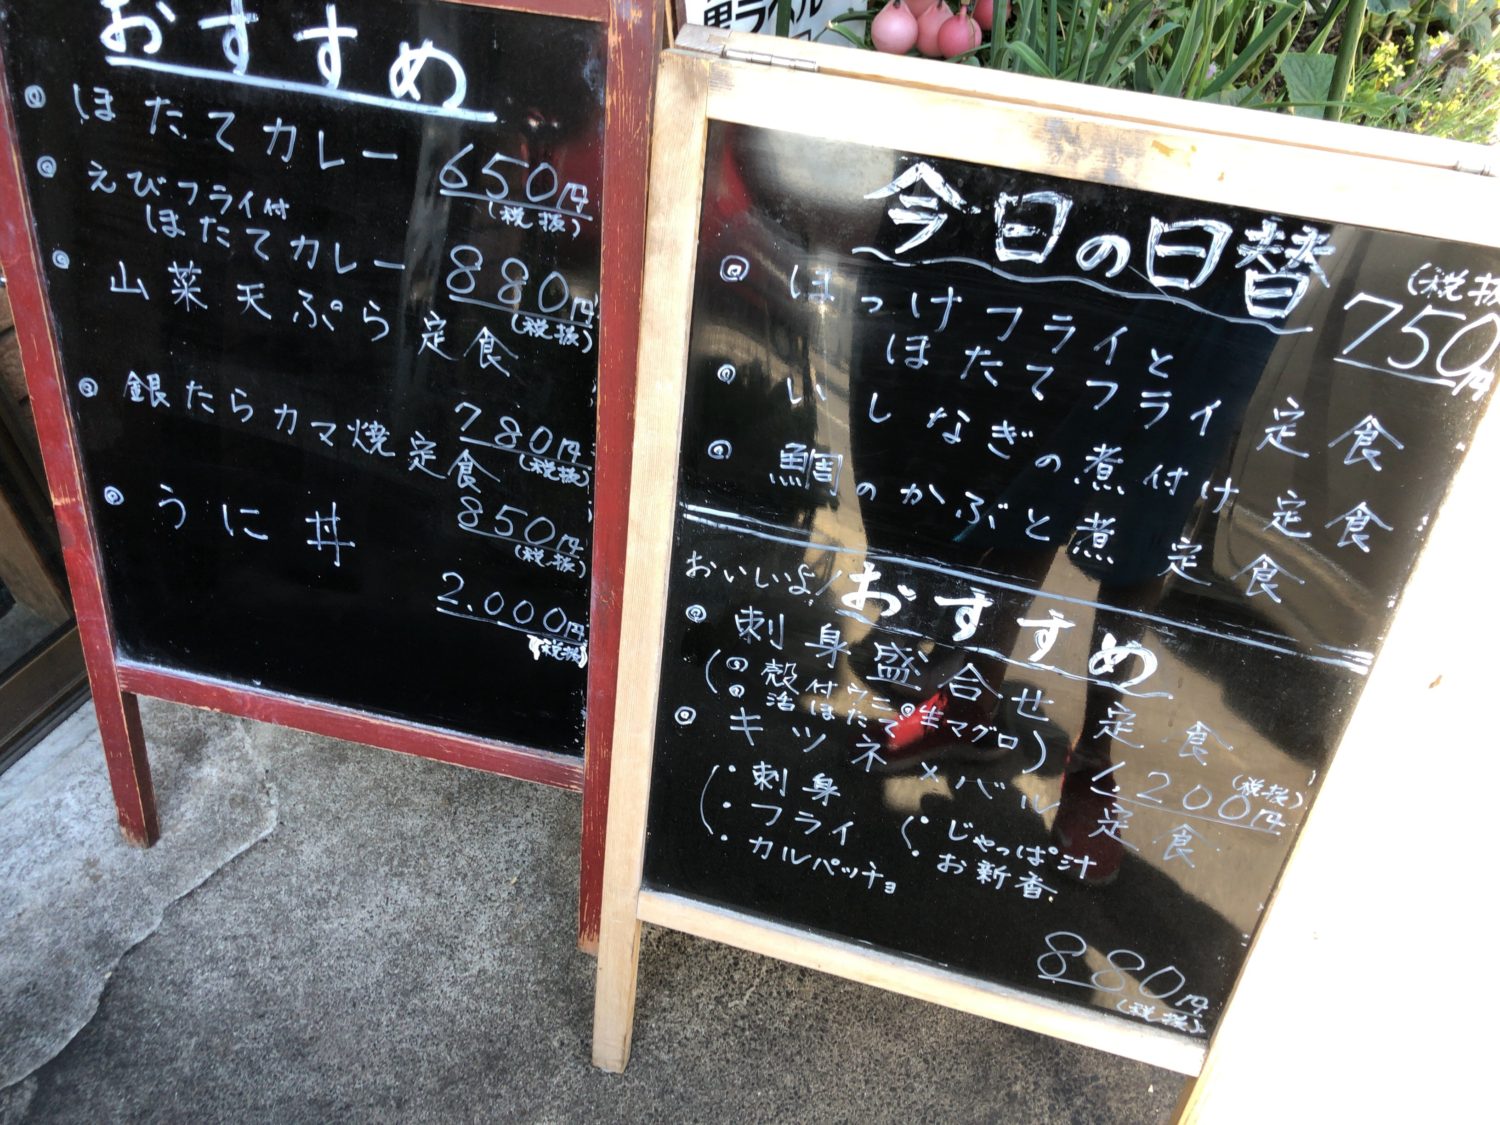 おすすめ
◎ ほたてカレー
650円
(税抜)
◎ えびフライ付
ほたてカレー
880円
(税抜)
◎ 山菜天ぷら定食
780円
(税抜)
◎ 銀たらカマ焼定食
850円
(税抜)
◎ うに丼
2.000円
(税抜)
黒ラベル
今日の日替
(税抜
750円
◎ ほっけフライと
ほたてフライ定食
◎ いしなぎの煮付け定食
◎ 鯛のかぶと煮定食
おいしいよ!おすすめ
◎ 刺身盛合せ定食
(◎殻付ウニ◎生マグロ
◎活ほたて)
1.200円
(税抜)
◎ キツネ×バル定食
(・刺身
・フライ
・カルパッチョ
(・じゃっぱ汁
・お新香
880円
(税抜)